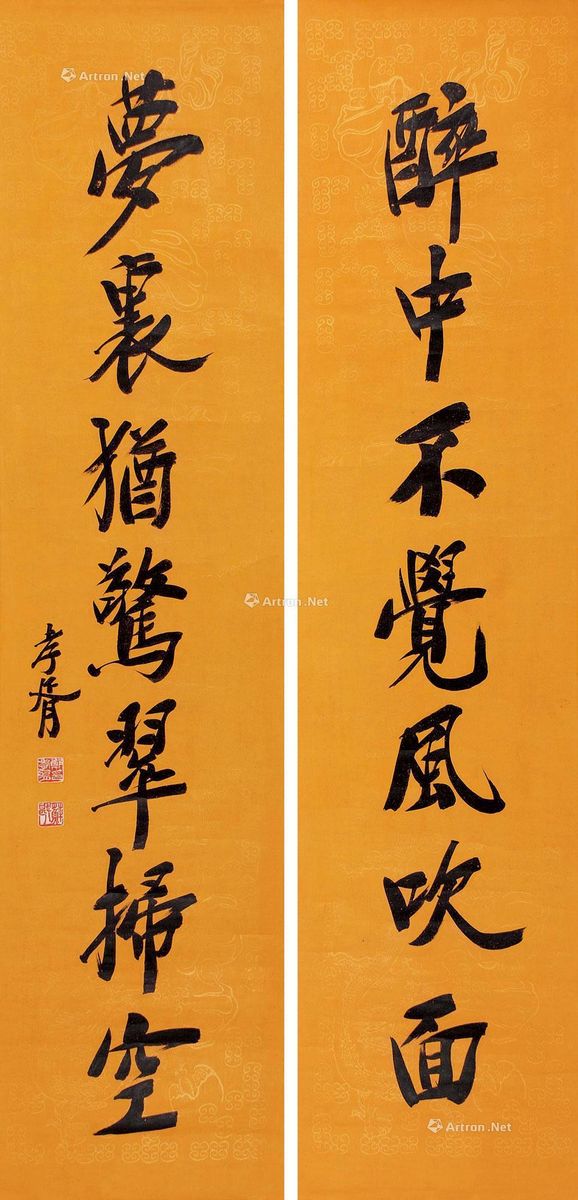 醉中不覺風吹面
夢裏猶驚翠掃空
孝胥
Artron.Net
Artron.Net
Artron.Net